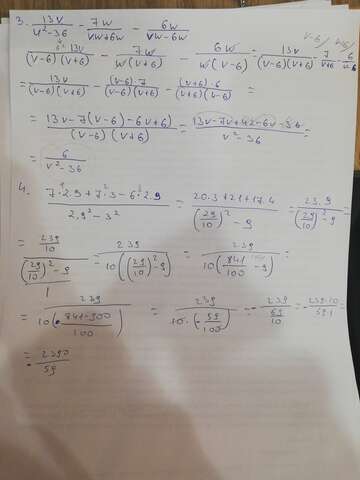 3. 13v/(v²-36) - 7w/(vw+6w) - 6w/(vw-6w)
13v/((v-6)(v+6)) - 7w/(w(v+6)) - 6w/(w(v-6)) = 13v/((v-6)(v+6)) - 7/(v+6) - 6/(v-6)
13v/((v-6)(v+6)) - (v-6)·7/((v-6)(v+6)) - (v+6)·6/((v+6)(v-6)) =
= (13v-7(v-6)-6v+6)/((v-6)(v+6)) = (13v-7v+42-6v-36)/(v²-36) =
= 6/(v²-36)
= 20.3+21+17.4/((29/10)²-9) = 23.9/((29/10)²-9)
= (239/10)/(((29/10)²-9)/1) = 239/(10((29/10)²-9)) = 239/(10(841/100-9)) =
= 239/(10(841-900/100)) = 239/(10·(-59/100)) = -239/(59/10) = -239·10/(59·1) =
= -2390/59